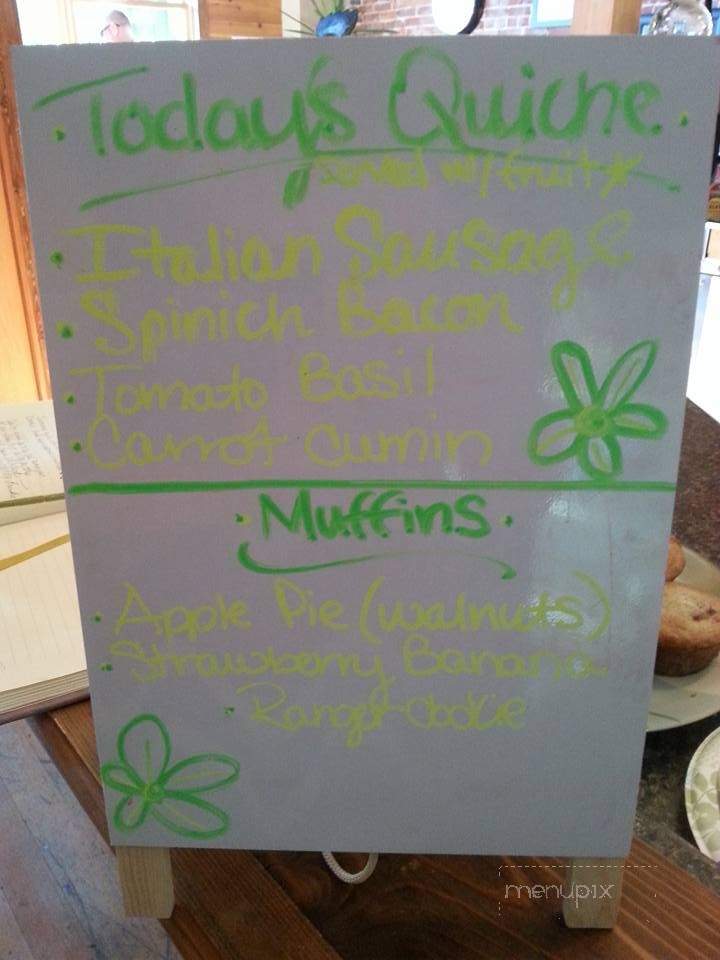 · Today's Quiche ·
served w/ fruit*
· Italian Sausage
· Spinich Bacon
· Tomato Basil
· Carrot Cumin
· Muffins ·
· Apple Pie (walnuts)
· Strawberry Banana
· Ranger Cookie
menupix